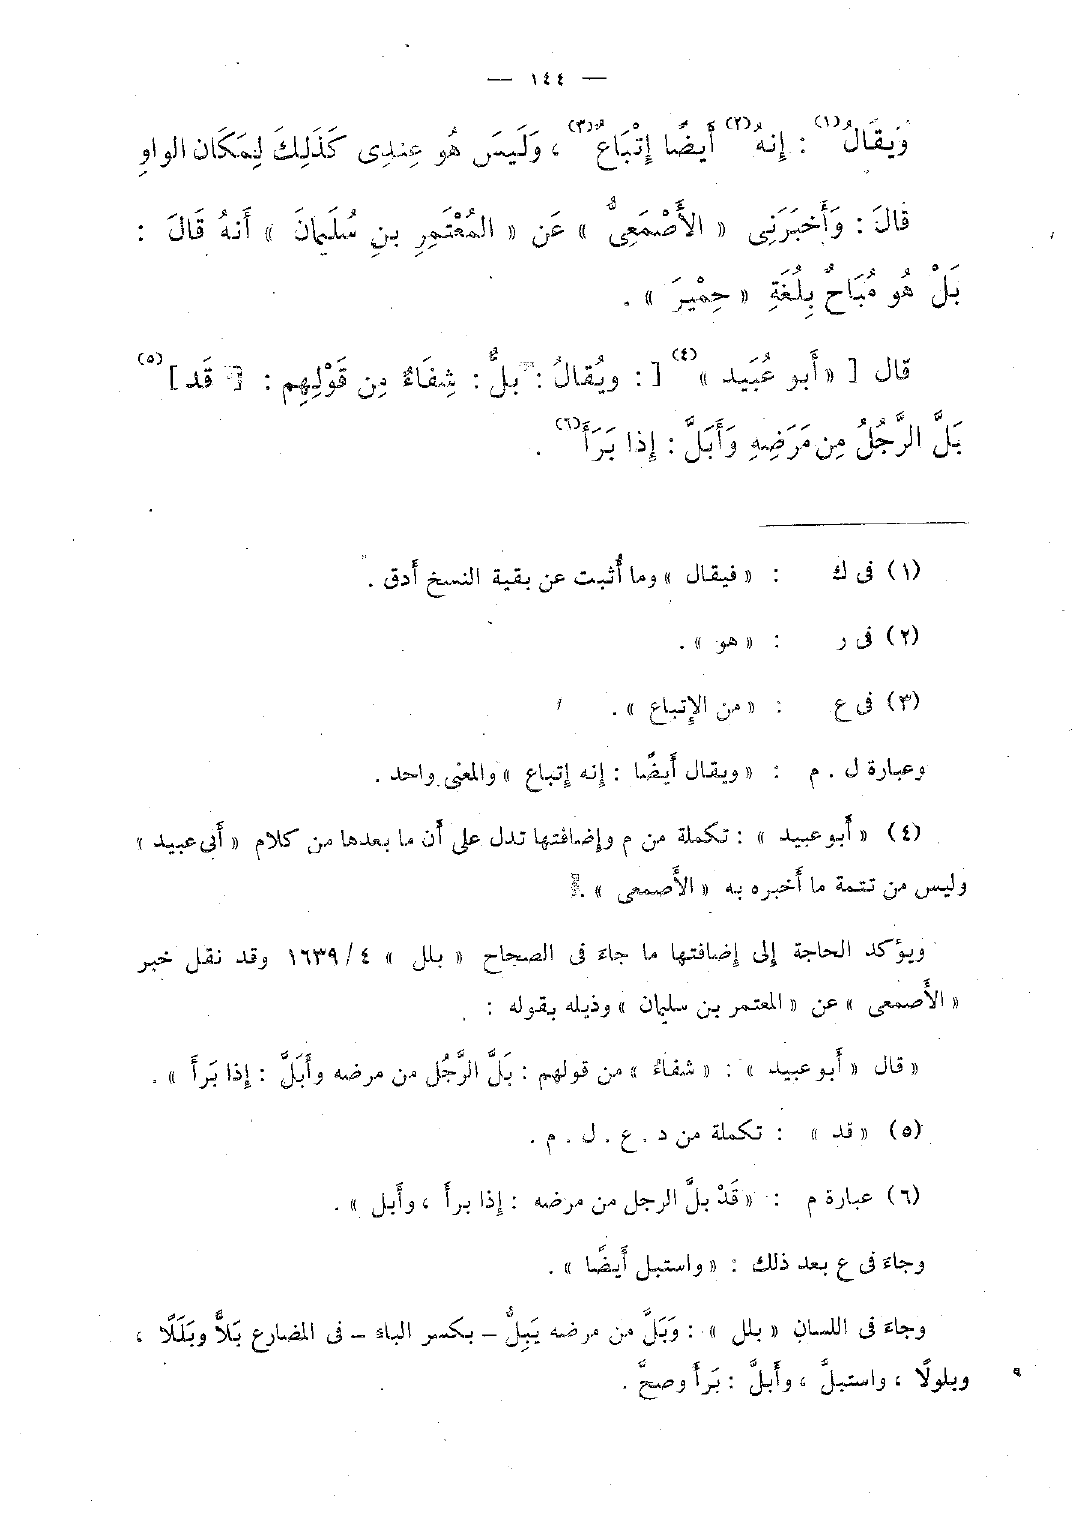 — ١٤٤ —
وَيُقَالُ(١) : إنهُ(٢) أَيضًا إتْبَاعٌ(٣) ، وَلَيسَ هُو عِندِى كَذَلِكَ لِمَكَان الواوِ
قالَ : وَأَخبَرَنِى « الأَصْمَعِىُّ » عَن « المُعْتَمِرِ بنِ سُلَيمانَ » أَنهُ قَالَ :
بَلْ هُو مُبَاحٌ بِلُغَةِ « حِمْيرَ » .
قال [ « أَبو عُبَيد »(٤) ] : ويُقالُ : بلٌّ : شِفَاءٌ مِن قَوْلِهِم : [ قَد ](٥)
بَلَّ الرَّجُلُ مِن مَرَضِهِ وَأَبَلَّ : إذا بَرَأَ(٦) .
(١) فى ك : « فيقال » وما أُثبت عن بقية النسخ أَدق .
(٢) فى ر : « هو » .
(٣) فى ع : « من الإتباع » .
وعبارة ل . م : « ويقال أَيضًا : إنه إتباع » والمعنى واحد .
(٤) « أَبو عبيد » : تكملة من م وإضافتها تدل على أَن ما بعدها من كلام « أَبى عبيد »
وليس من تتمة ما أَخبره به « الأَصمعى » .
ويؤكد الحاجة إلى إضافتها ما جاءَ فى الصحاح « بلل » ٤/ ١٦٣٩ وقد نقل خبر
« الأَصمعى » عن « المعتمر بن سليمان » وذيله بقوله :
« قال « أَبو عبيد » : « شفاءٌ » من قولهم : بَلَّ الرَّجُل من مرضه وأَبَلَّ : إذا بَرأَ » .
(٥) « قد » : تكملة من د . ع . ل . م .
(٦) عبارة م : « قَدْ بلَّ الرجل من مرضه : إذا برأَ ، وأَبل » .
وجاءَ فى ع بعد ذلك : « واستبل أَيضًا » .
وجاءَ فى اللسان « بلل » : وَبَلَّ من مرضه يَبِلُّ – بكسر الباءِ – فى المضارع بَلاًّ وبَلَلًا ،
وبلولًا ، واستبلَّ ، وأَبلَّ : بَرأَ وصحَّ .